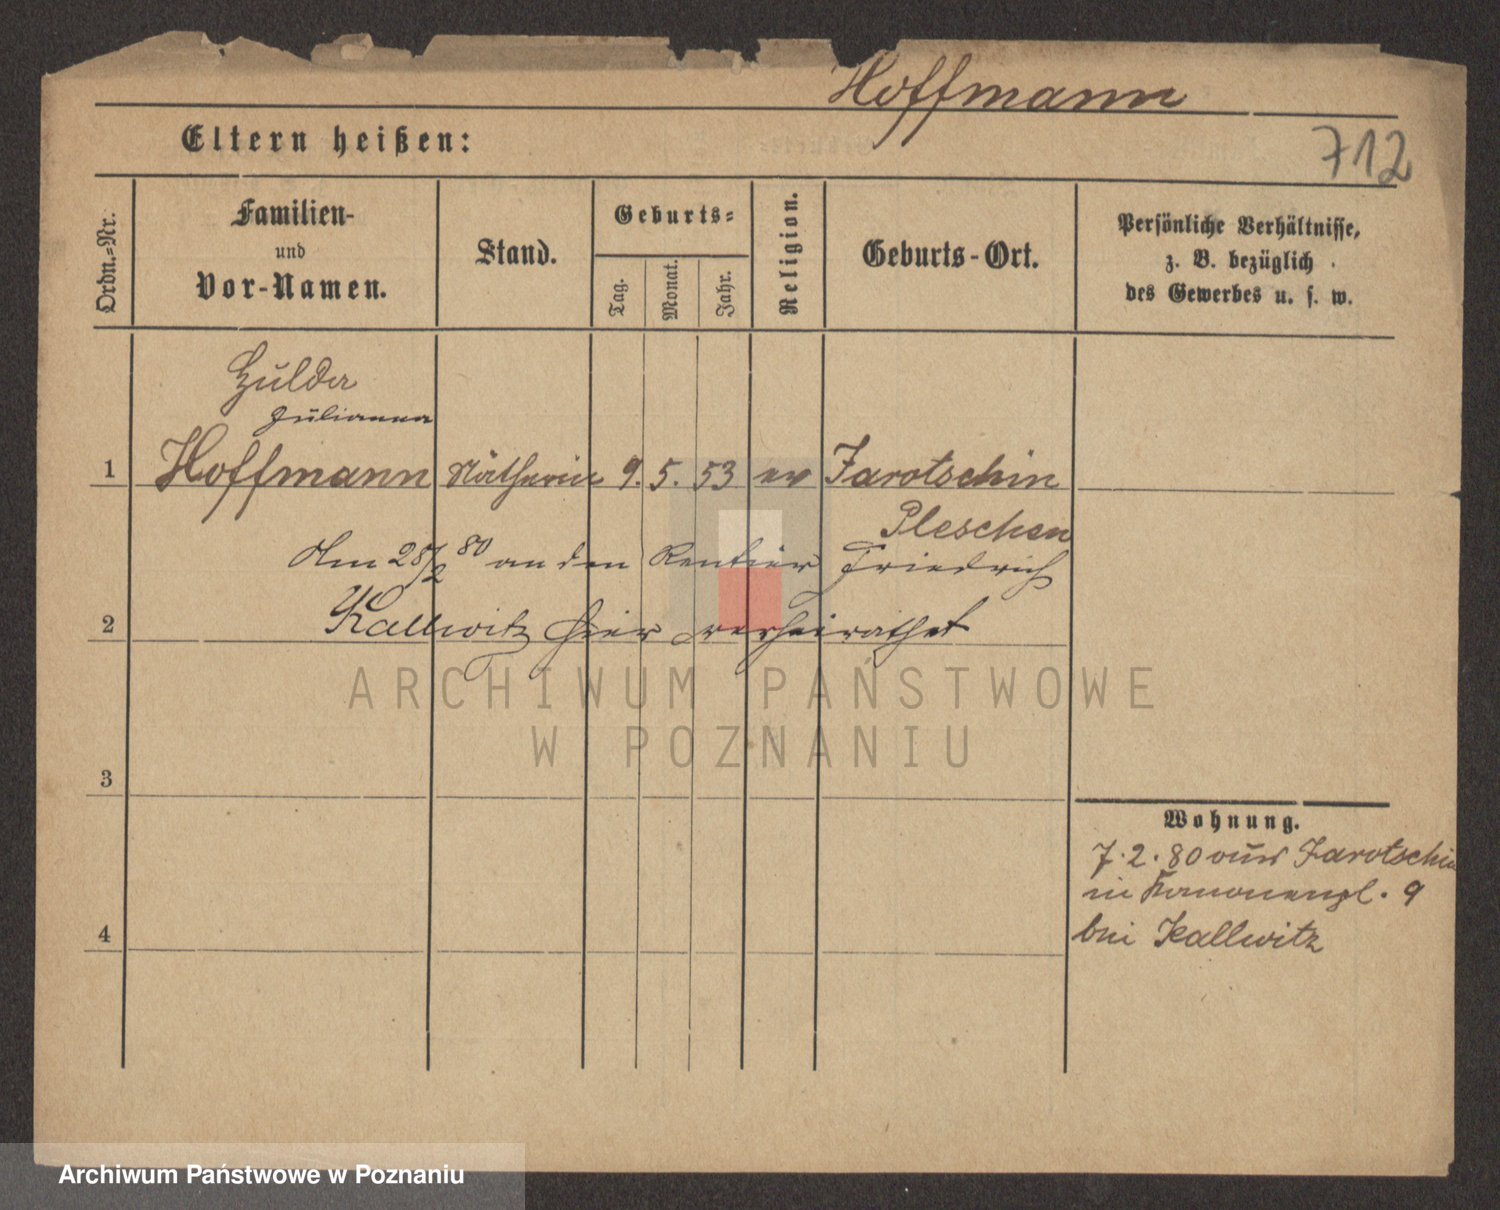 Hoffmann
Eltern heißen:
712
Ordn.-Nr.
Familien-
und
Vor-Namen.
Stand.
Geburts-
Tag.
Monat.
Jahr.
Religion.
Geburts-Ort.
Persönliche Verhältnisse,
z. B. bezüglich
des Gewerbes u. s. w.
Hulda
Julianna
1 Hoffmann Nätherin 9. 5. 53 ev Jarotschin
Pleschen
Am 28/2 80 an den Rentier Friedrich
2 Kallwitz hier verheirathet
ARCHIWUM PAŃSTWOWE
W POZNANIU
3
Wohnung.
7.2.80 aus Jarotschin
in Kanonenpl. 9
4
bei Kallwitz
Archiwum Państwowe w Poznaniu